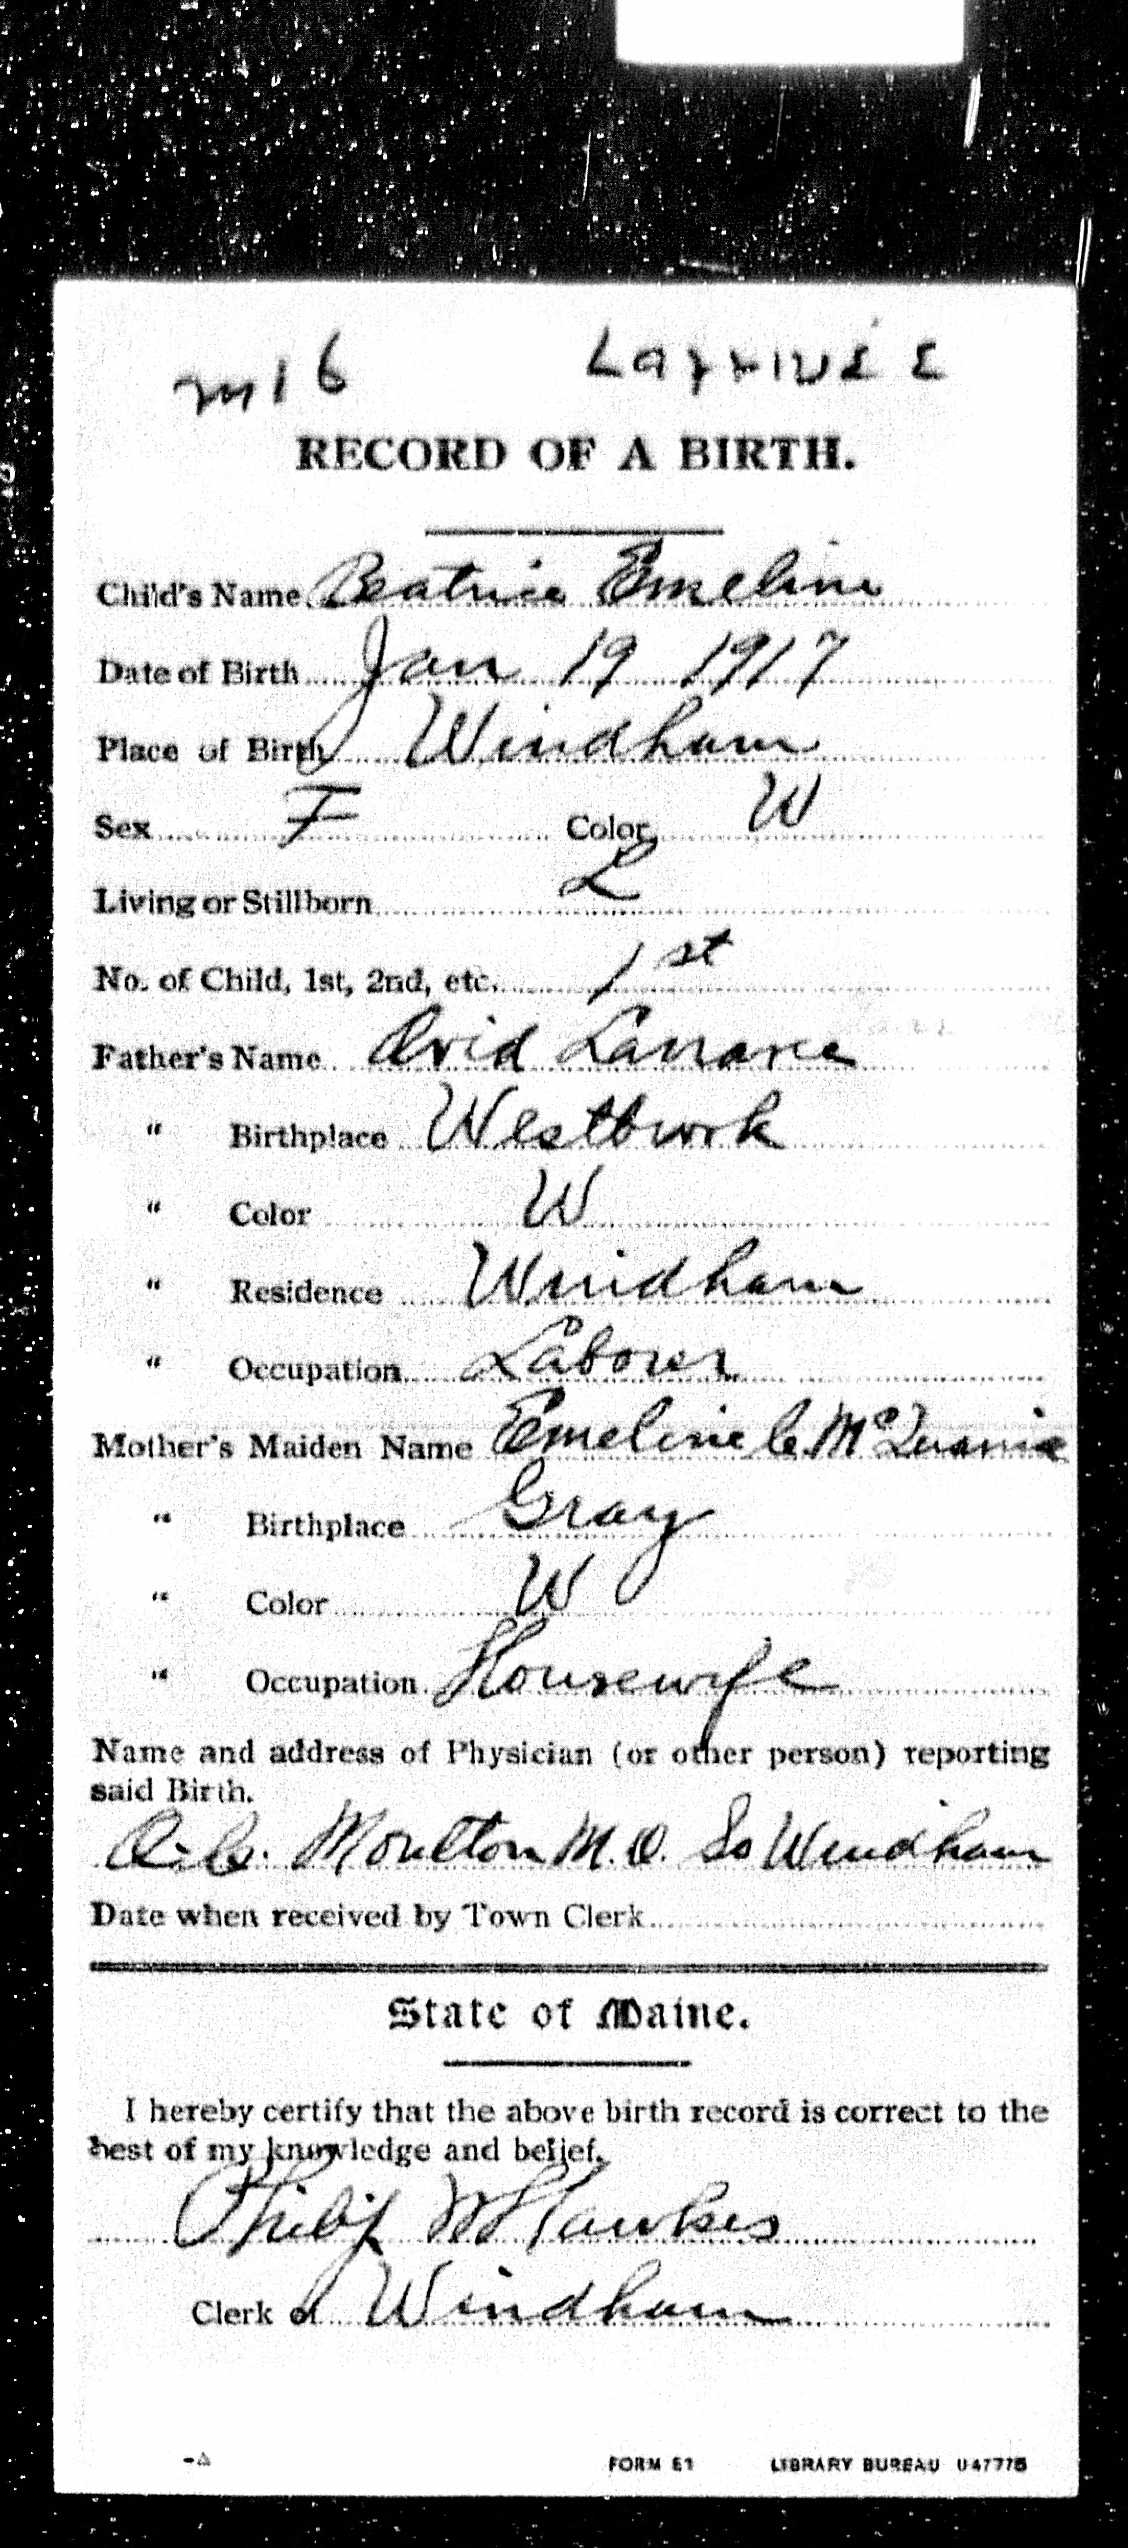 m16 Larrivee
RECORD OF A BIRTH.
Child's Name Beatrice Emeline
Date of Birth Jan 19 1917
Place of Birth Windham
Sex F Color W
Living or Stillborn L
No. of Child, 1st, 2nd, etc. 1st
Father's Name Ovid Larravee
" Birthplace Westbrook
" Color W
" Residence Windham
" Occupation Laborer
Mother's Maiden Name Emeline C. McQuanie
" Birthplace Gray
" Color W
" Occupation Housewife
Name and address of Physician (or other person) reporting
said Birth.
Moulton M.D. So Windham
Date when received by Town Clerk
State of Maine.
I hereby certify that the above birth record is correct to the
best of my knowledge and belief.
Philip W Hawkes
Clerk of Windham
FORM E1 LIBRARY BUREAU U47775